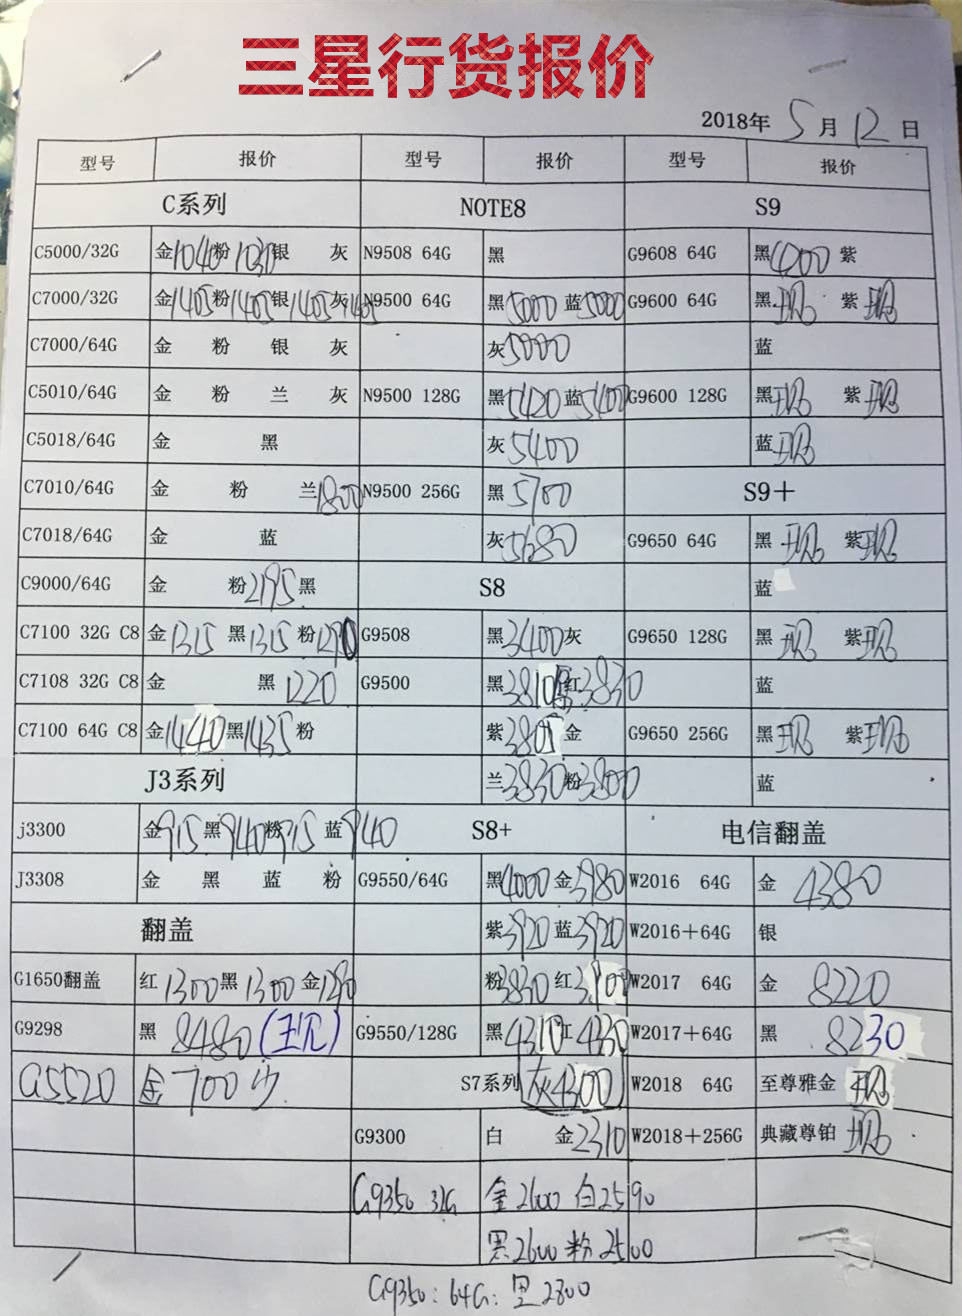 三星行货报价
2018年 5 月 12 日
型号 报价 型号 报价 型号 报价
C系列 NOTE8 S9
C5000/32G 金1040粉1030银 灰 N9508 64G 黑 G9608 64G 黑4200 紫
C7000/32G 金1405粉1405银1405灰1405 N9500 64G 黑5000 蓝5000 G9600 64G 黑现 紫现
C7000/64G 金 粉 银 灰 灰5000 蓝
C5010/64G 金 粉 兰 灰 N9500 128G 黑5420 蓝5400 G9600 128G 黑现 紫现
C5018/64G 金 黑 灰5400 蓝现
C7010/64G 金 粉 兰1800 N9500 256G 黑5700 S9＋
C7018/64G 金 蓝 灰5680 G9650 64G 黑现 紫现
C9000/64G 金 粉2195黑 S8 蓝
C7100 32G C8 金1315 黑1315 粉1290 G9508 黑3400灰 G9650 128G 黑现 紫现
C7108 32G C8 金 黑1220 G9500 黑3810 红3830 蓝
C7100 64G C8 金1440黑1435粉 紫3805金 G9650 256G 黑现 紫现
J3系列 兰3830粉3800 蓝
j3300 金915黑940粉915蓝940 S8+ 电信翻盖
J3308 金 黑 蓝 粉 G9550/64G 黑4000金3980 W2016 64G 金 4380
翻盖 紫3920蓝3920 W2016＋64G 银
G1650翻盖 红1300黑1300金1290 粉3830红3900 W2017 64G 金 8220
G9298 黑 8480(现) G9550/128G 黑4310红4330 W2017＋64G 黑 8230
G5520 金700少 S7系列 灰4300 W2018 64G 至尊雅金 现
G9300 白 金2310 W2018＋256G 典藏尊铂 现
G9350 32G 金2600 白2590
黑2600粉2500
G9350:64G:黑2800